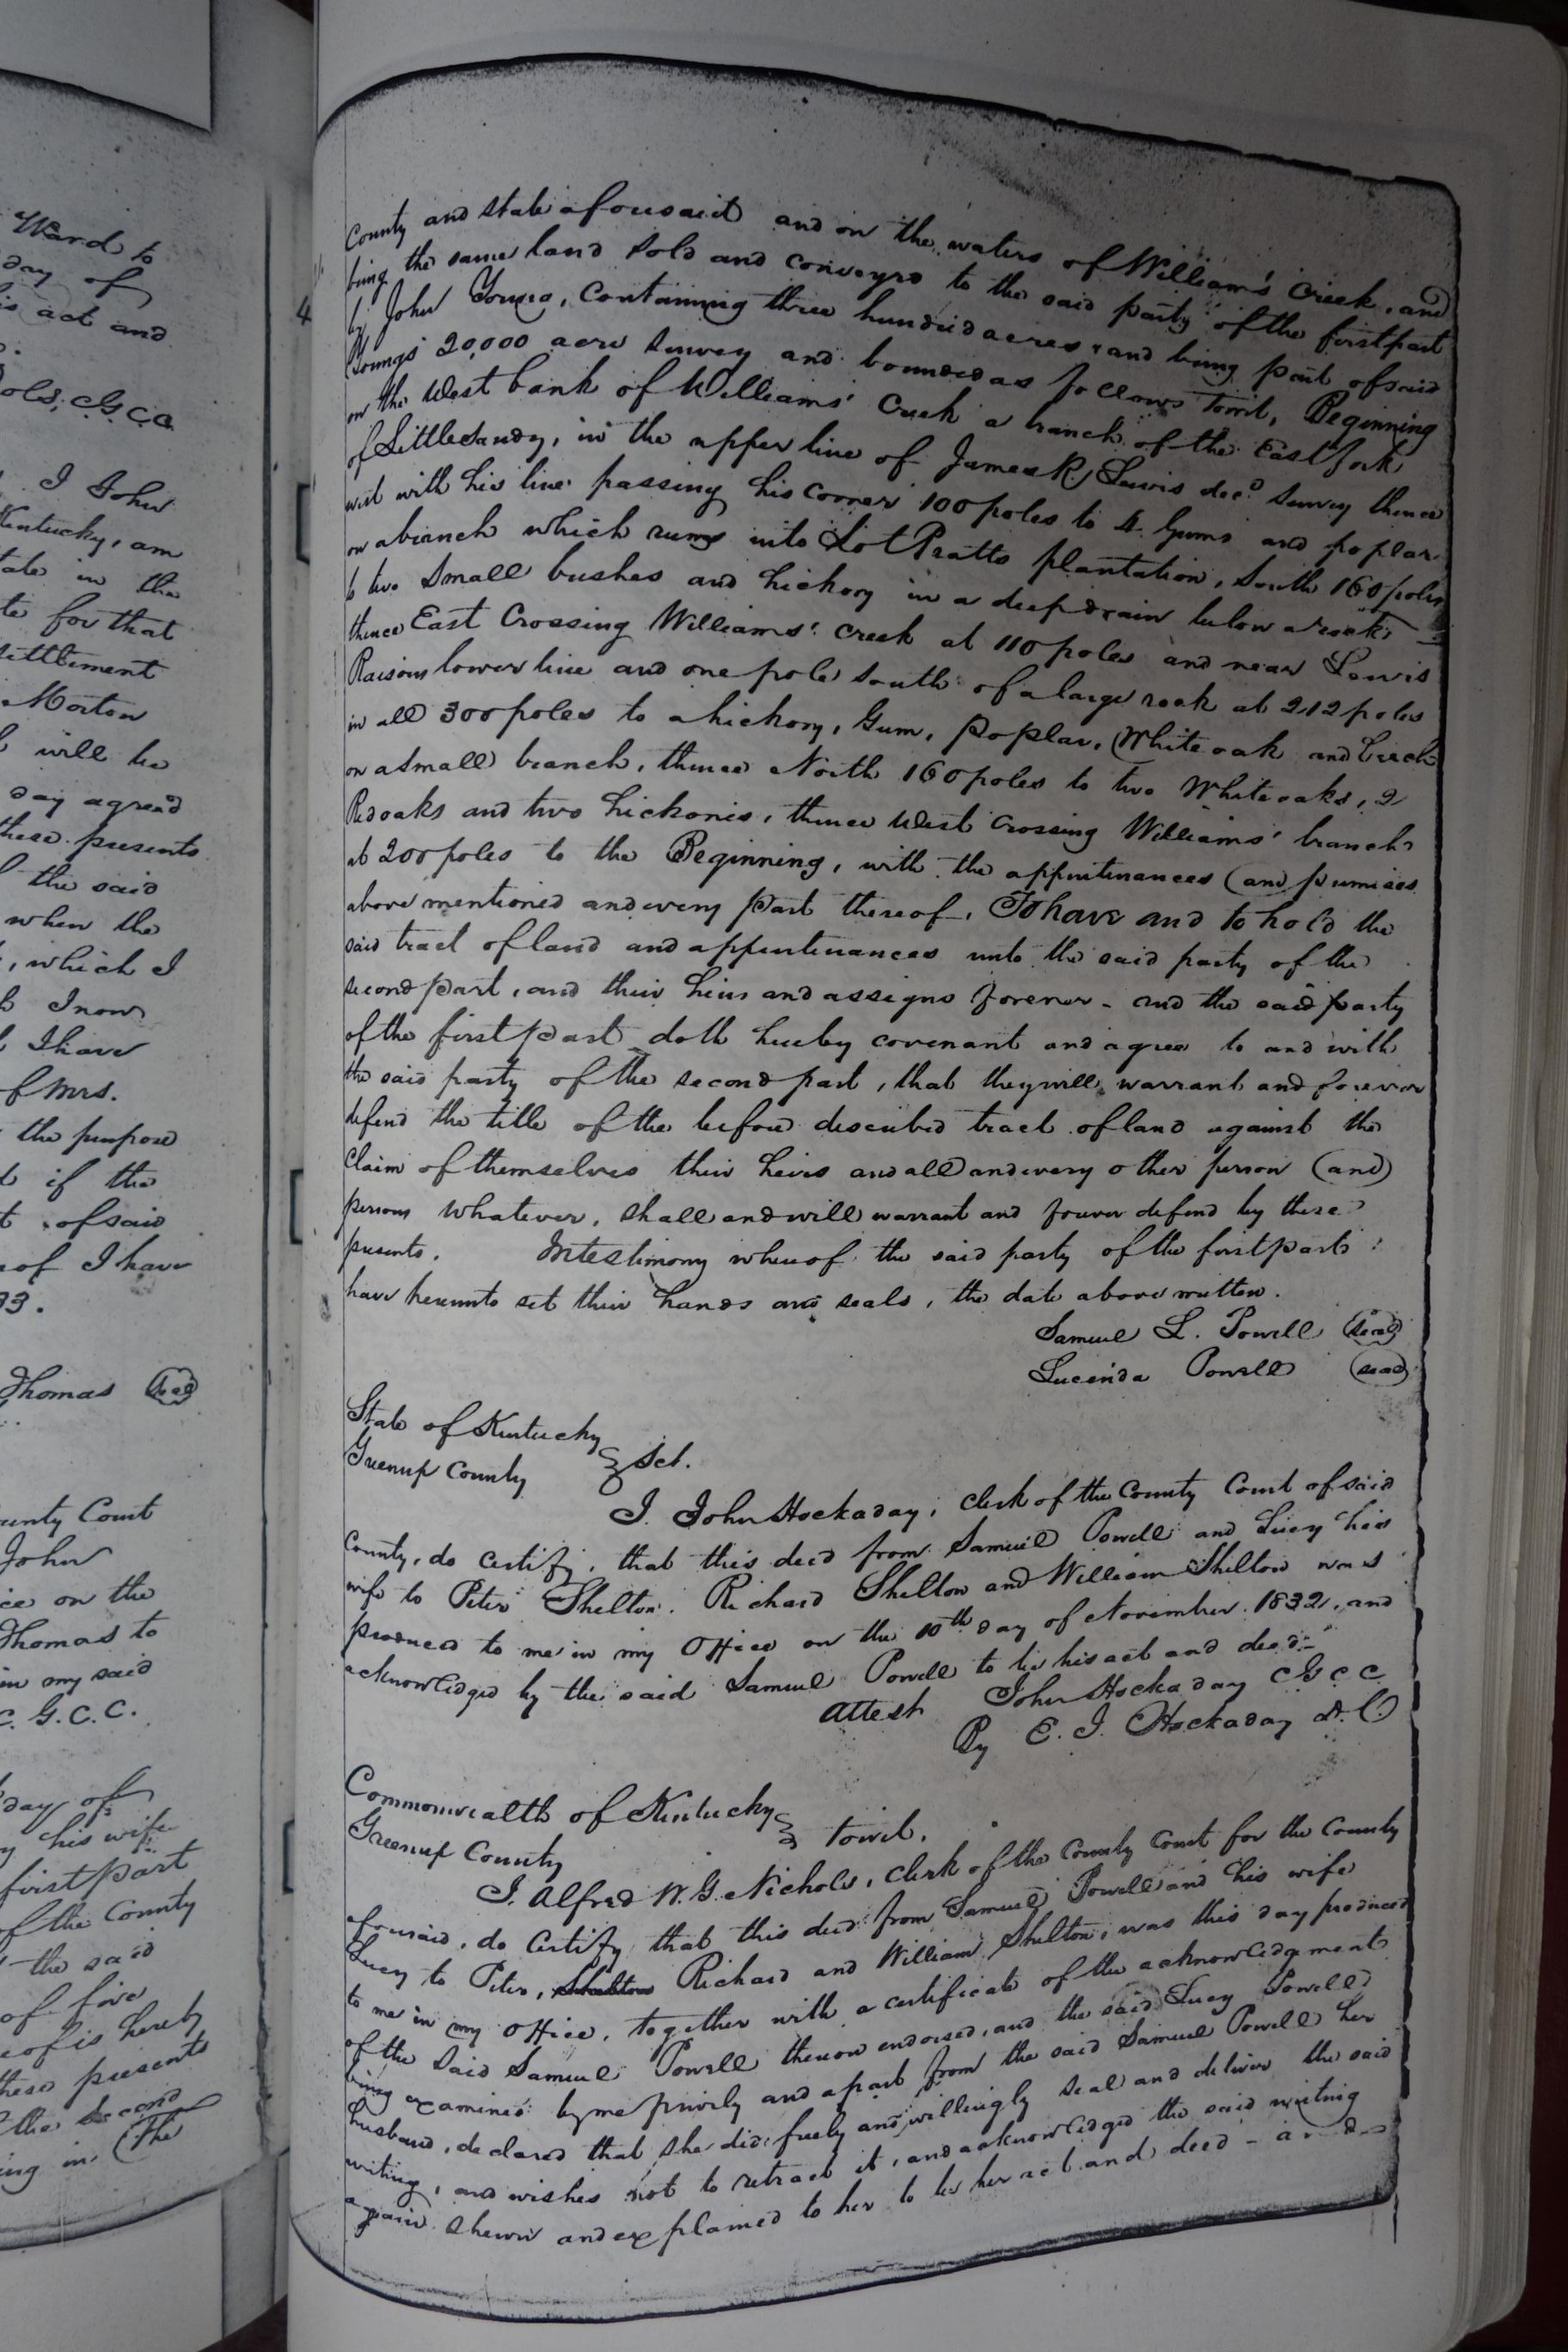 Ward to
day of
is act and
ols, C.G.C.C.
I John
Kentucky, am
ate in the
te for that
settlement
Morton
will be
day agreed
these presents
the said
when the
, which I
I now
I have
of Mrs.
the purpose
if the
of said
eof I have
33.
Thomas (seal)
unty Court
John
ice on the
Thomas to
in my said
C. G. C. C.
day of
y his wife
first part
of the County
the said
of five
eof is hereby
these presents
the second
ing in. The
4
County and state aforesaid and on the waters of William's Creek, and
being the same land sold and conveyed to the said party of the first part
by John Young, Containing three hundred acres, and being part of said
Youngs 20,000 acre survey and bounded as follows Towit, Beginning
on the West bank of Williams' Creek a branch of the East fork
of Little Sandy, in the upper line of James R. Lewis decd survey thence
west with his line passing his corner 100 poles to 4 Gums and poplar
on a branch which runs into Lot Pratts plantation, South 160 poles
to two small bushes and hickory in a deep drain below a rock
thence East Crossing Williams' creek at 110 poles and near Lewis
Raisons lower line and one pole south of a large rock at 212 poles
in all 300 poles to a hickory, Gum, poplar, White oak and beech
on a small branch, thence North 160 poles to two White oaks, 2
Red oaks and two hickories, thence West crossing Williams' branch
at 200 poles to the Beginning, with the appurtenances and premises
above mentioned and every part thereof, To have and to hold the
said tract of land and appurtenances unto the said party of the
second part, and their heirs and assigns forever - and the said party
of the first part doth hereby covenant and agree to and with
the said party of the second part, that they will warrant and forever
defend the title of the before described tract of land against the
Claim of themselves their heirs and all and every other person (and)
persons whatever, shall and will warrant and forever defend by these
presents. In testimony whereof the said party of the first part
have hereunto set their hands and seals, the date above written.
Samuel L. Powell (seal)
Lucinda Powell (seal)
State of Kentucky
Greenup County } Sct.
I. John Hockaday, clerk of the County Court of said
County, do Certify, that this deed from Samuel Powell and Lucy his
wife to Peter Shelton, Richard Shelton and William Shelton was
produced to me in my Office on the 10th day of November 1832, and
acknowledged by the said Samuel Powell to be his act and deed -
Attest John Hockaday C G C C
By E. J. Hockaday D.C.
Commonwealth of Kentucky
Greenup County } towit.
I. Alfred W. G. Nichols, Clerk of the County Court for the County
aforesaid, do Certify that this deed from Samuel Powell and his wife
Lucy to Peter, Shelton Richard and William Shelton, was this day produced
to me in my Office, together with a certificate of the acknowledgement
of the said Samuel Powell thereon endorsed, and the said Lucy Powell
being examined by me privily and apart from the said Samuel Powell her
husband, declared that she did freely and willingly seal and deliver the said
writing, and wishes not to retract it, and acknowledged the said writing
again shewn and explained to her to be her act and deed -